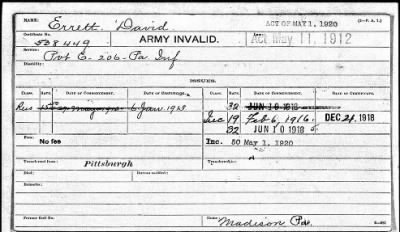 ACT OF MAY 1, 1920
NAME: Errett, David
Certificate No. 528449
ARMY INVALID.
Act May 11, 1912
SERVICE: Pvt C- 206- Pa Inf
Disability:
ISSUES.
CLASS. RATE. DATE OF COMMENCEMENT. DATE OF CERTIFICATE. CLASS. RATE. DATE OF COMMENCEMENT. DATE OF CERTIFICATE.
6 Jan 1923 32 JUN 10 1918
Inc 19 Feb 6, 1916 DEC 24 1918
32 JUN 10 1918
No fee Inc. 50 May 1, 1920
Transferred from Pittsburgh Transferred to
Died:
Remarks:
Former Roll No. Home: Madison Pa.